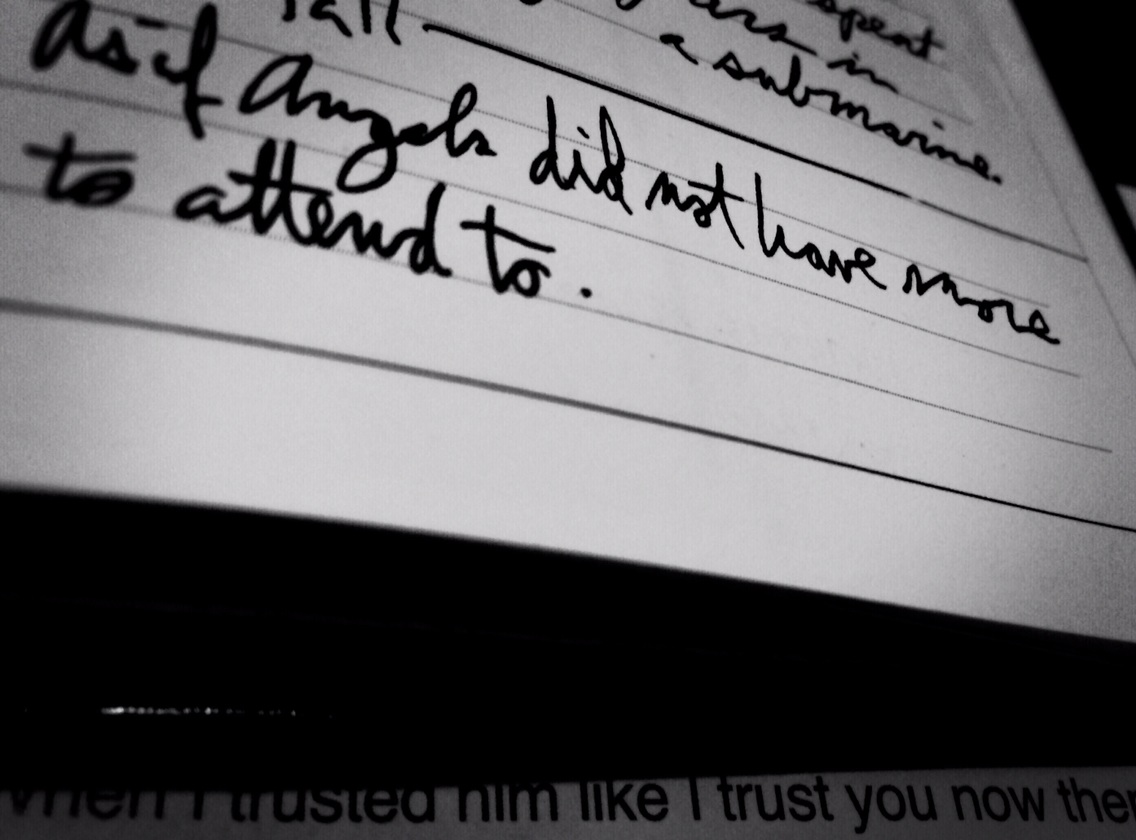 spent
in
a submarine.
fall
as if Angels did not have more
to attend to.
when I trusted him like I trust you now